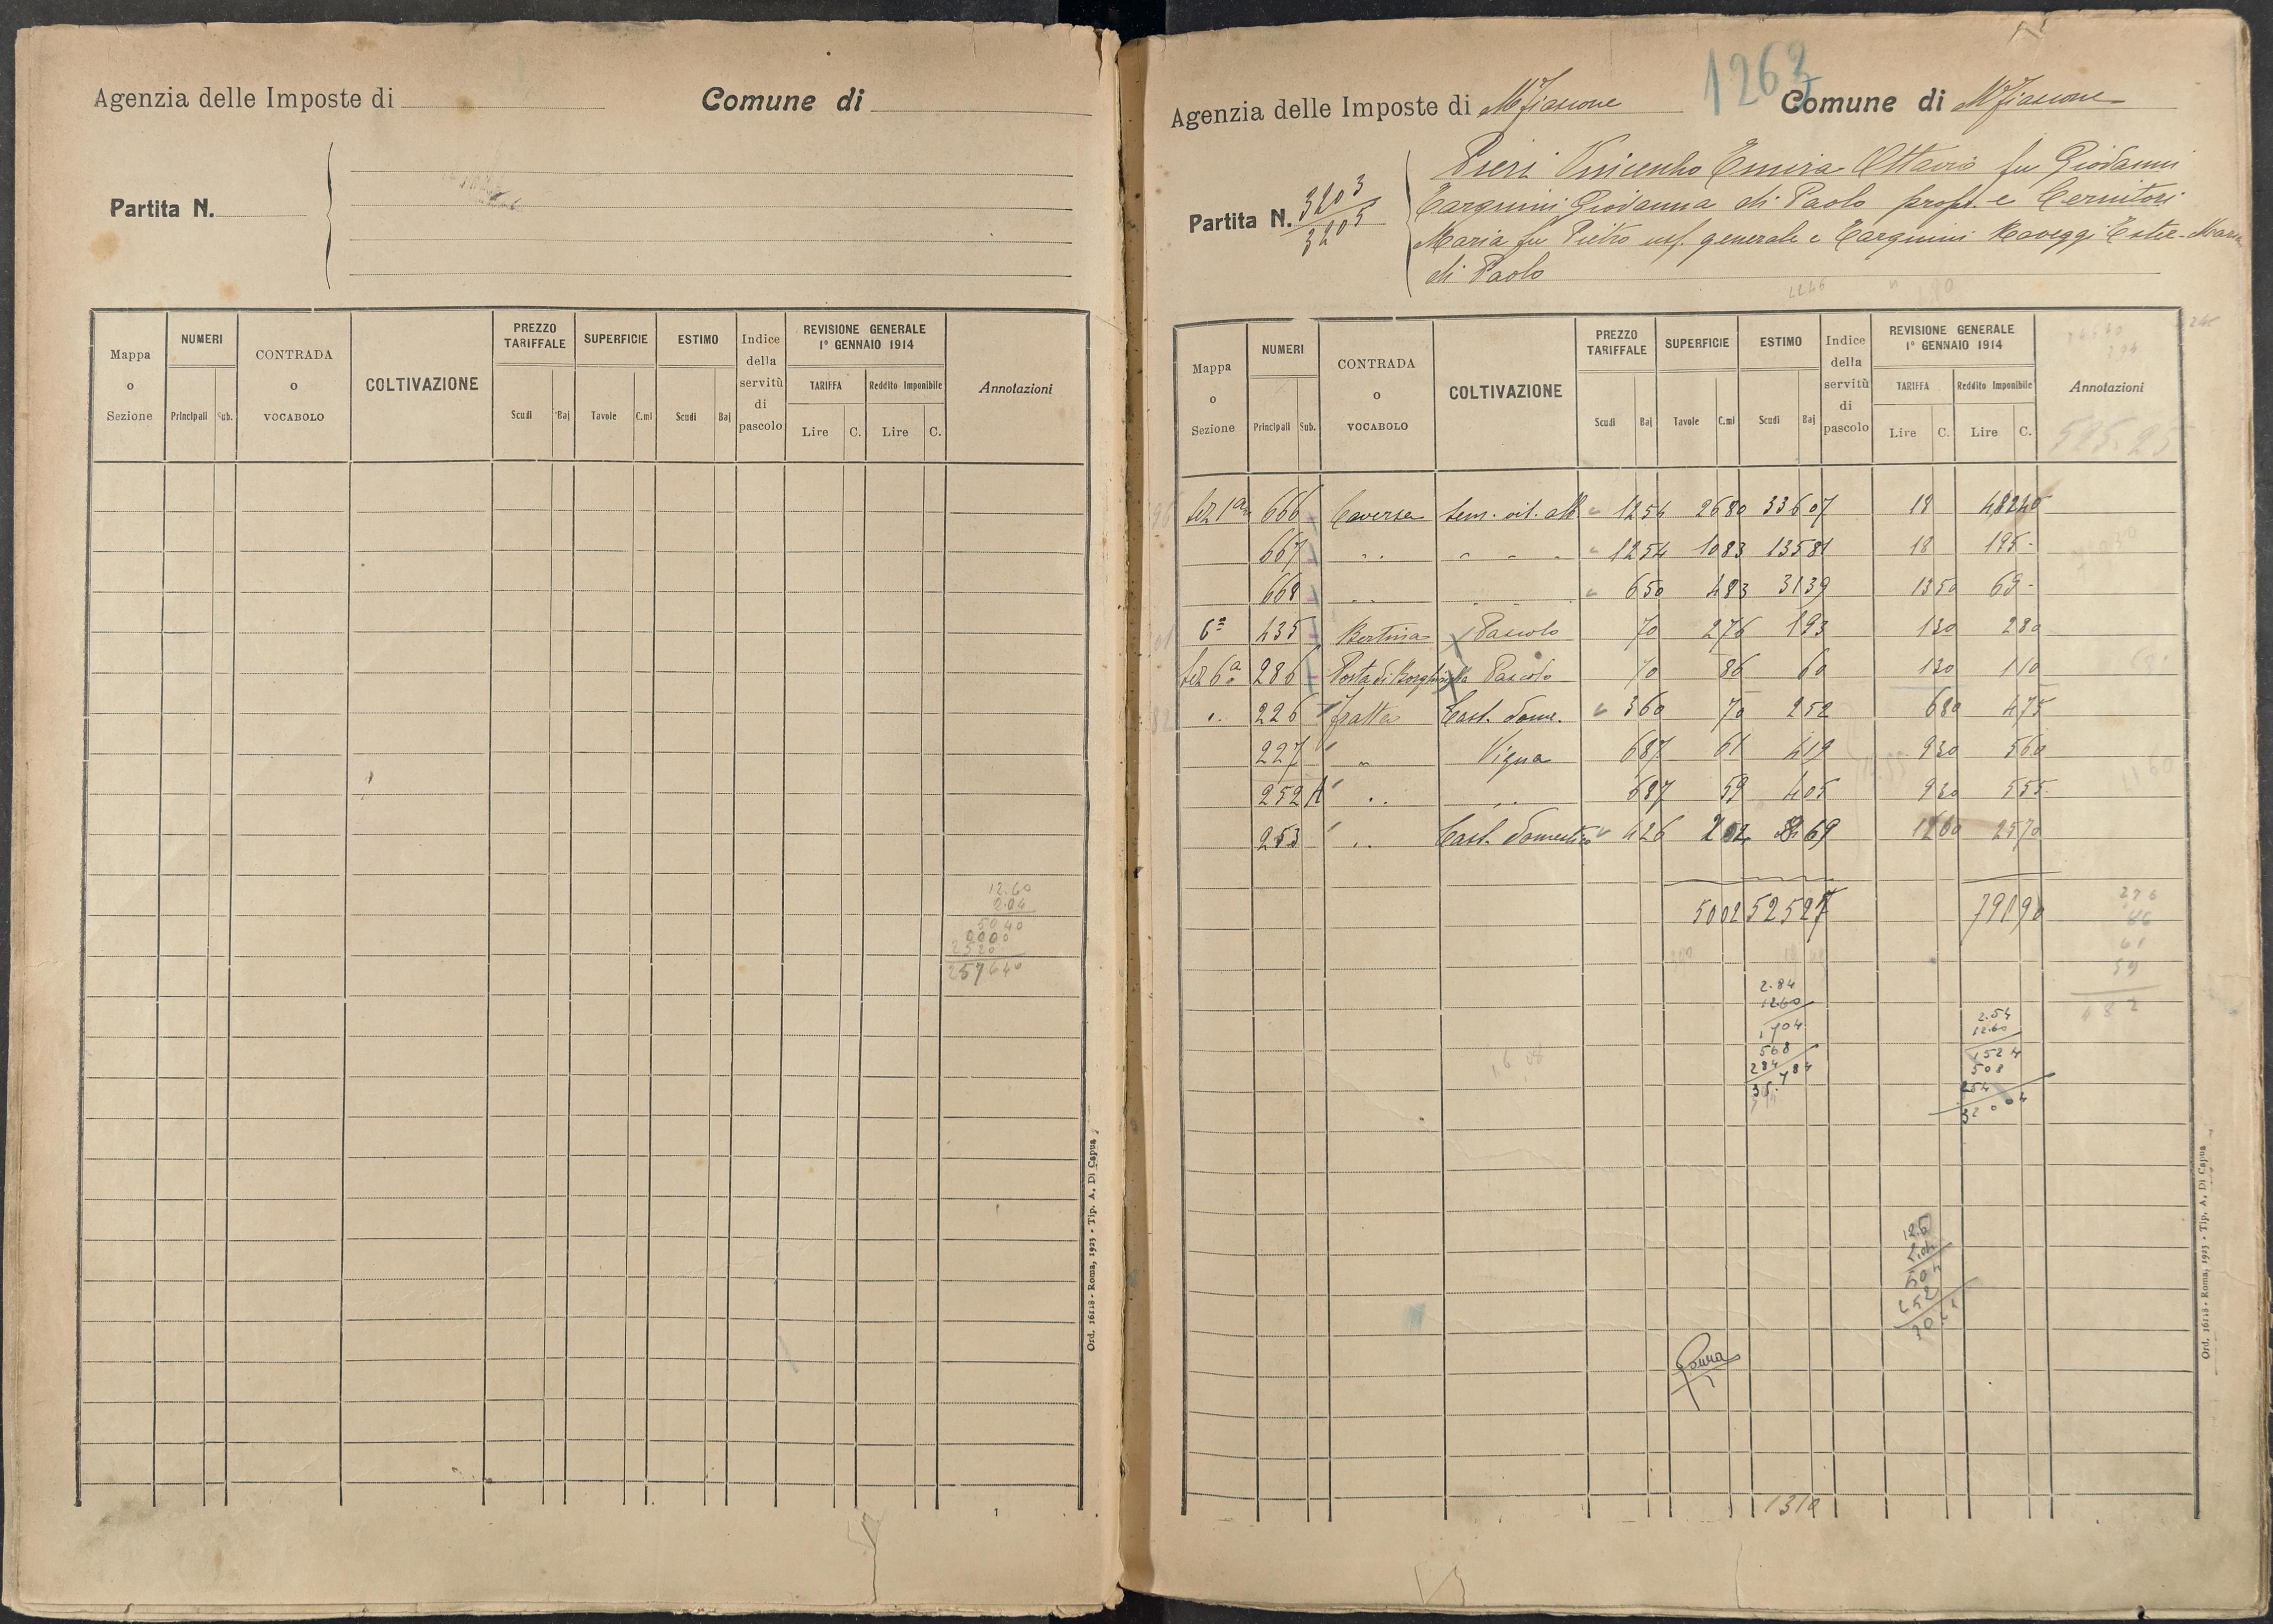 Agenzia delle Imposte di
Comune di
Partita N.
Mappa o Sezione
NUMERI
Principali Sub.
CONTRADA o VOCABOLO
COLTIVAZIONE
PREZZO TARIFFALE
Scudi Baj
SUPERFICIE
Tavole C.mi
ESTIMO
Scudi Baj
Indice della servitù di pascolo
REVISIONE GENERALE
1° GENNAIO 1914
TARIFFA
Lire C.
Reddito Imponibile
Lire C.
Annotazioni
12.60
2.04
5040
0000
2520
257040
Ord. 16118 - Roma, 1923 - Tip. A. Di Capua
1263
Agenzia delle Imposte di Mfiascone
Comune di Mfiascone
Partita N. 3203
3205
Pieri Vincenzo Emira Ottavio fu Giovanni
Tarquini Giovanna di Paolo propr. e Cernitori
Maria fu Pietro usf. generale e Tarquini Raveggi Ester-Maria
di Paolo
Mappa o Sezione
NUMERI
Principali Sub.
CONTRADA o VOCABOLO
COLTIVAZIONE
PREZZO TARIFFALE
Scudi Baj
SUPERFICIE
Tavole C.mi
ESTIMO
Scudi Baj
Indice della servitù di pascolo
REVISIONE GENERALE
1° GENNAIO 1914
TARIFFA
Lire C.
Reddito Imponibile
Lire C.
Annotazioni
525.25
Sez 1a 666 Caversa Sem. vit. alb 1254 2680 33607 18 48240
667 " " 1254 1083 13581 18 195-
668 " " 650 483 3139 1350 69-
6a 435 Bertina Pascolo 70 276 193 130 280
Sez 6a 286 Pascolo 70 86 60 130 110
" 226 fratta Cast. dome. 360 70 252 680 475
227 " Vigna 687 61 419 930 560
252 A " " 687 59 405 930 555
253 " Cast. domestico 426 204 869 1260 2570
5002 52527 79190
276
86
61
59
482
2.84
1260
1704
568
284
35.784
2.54
12.60
1524
508
254
32004
1310
Ord. 16118 - Roma, 1923 - Tip. A. Di Capua